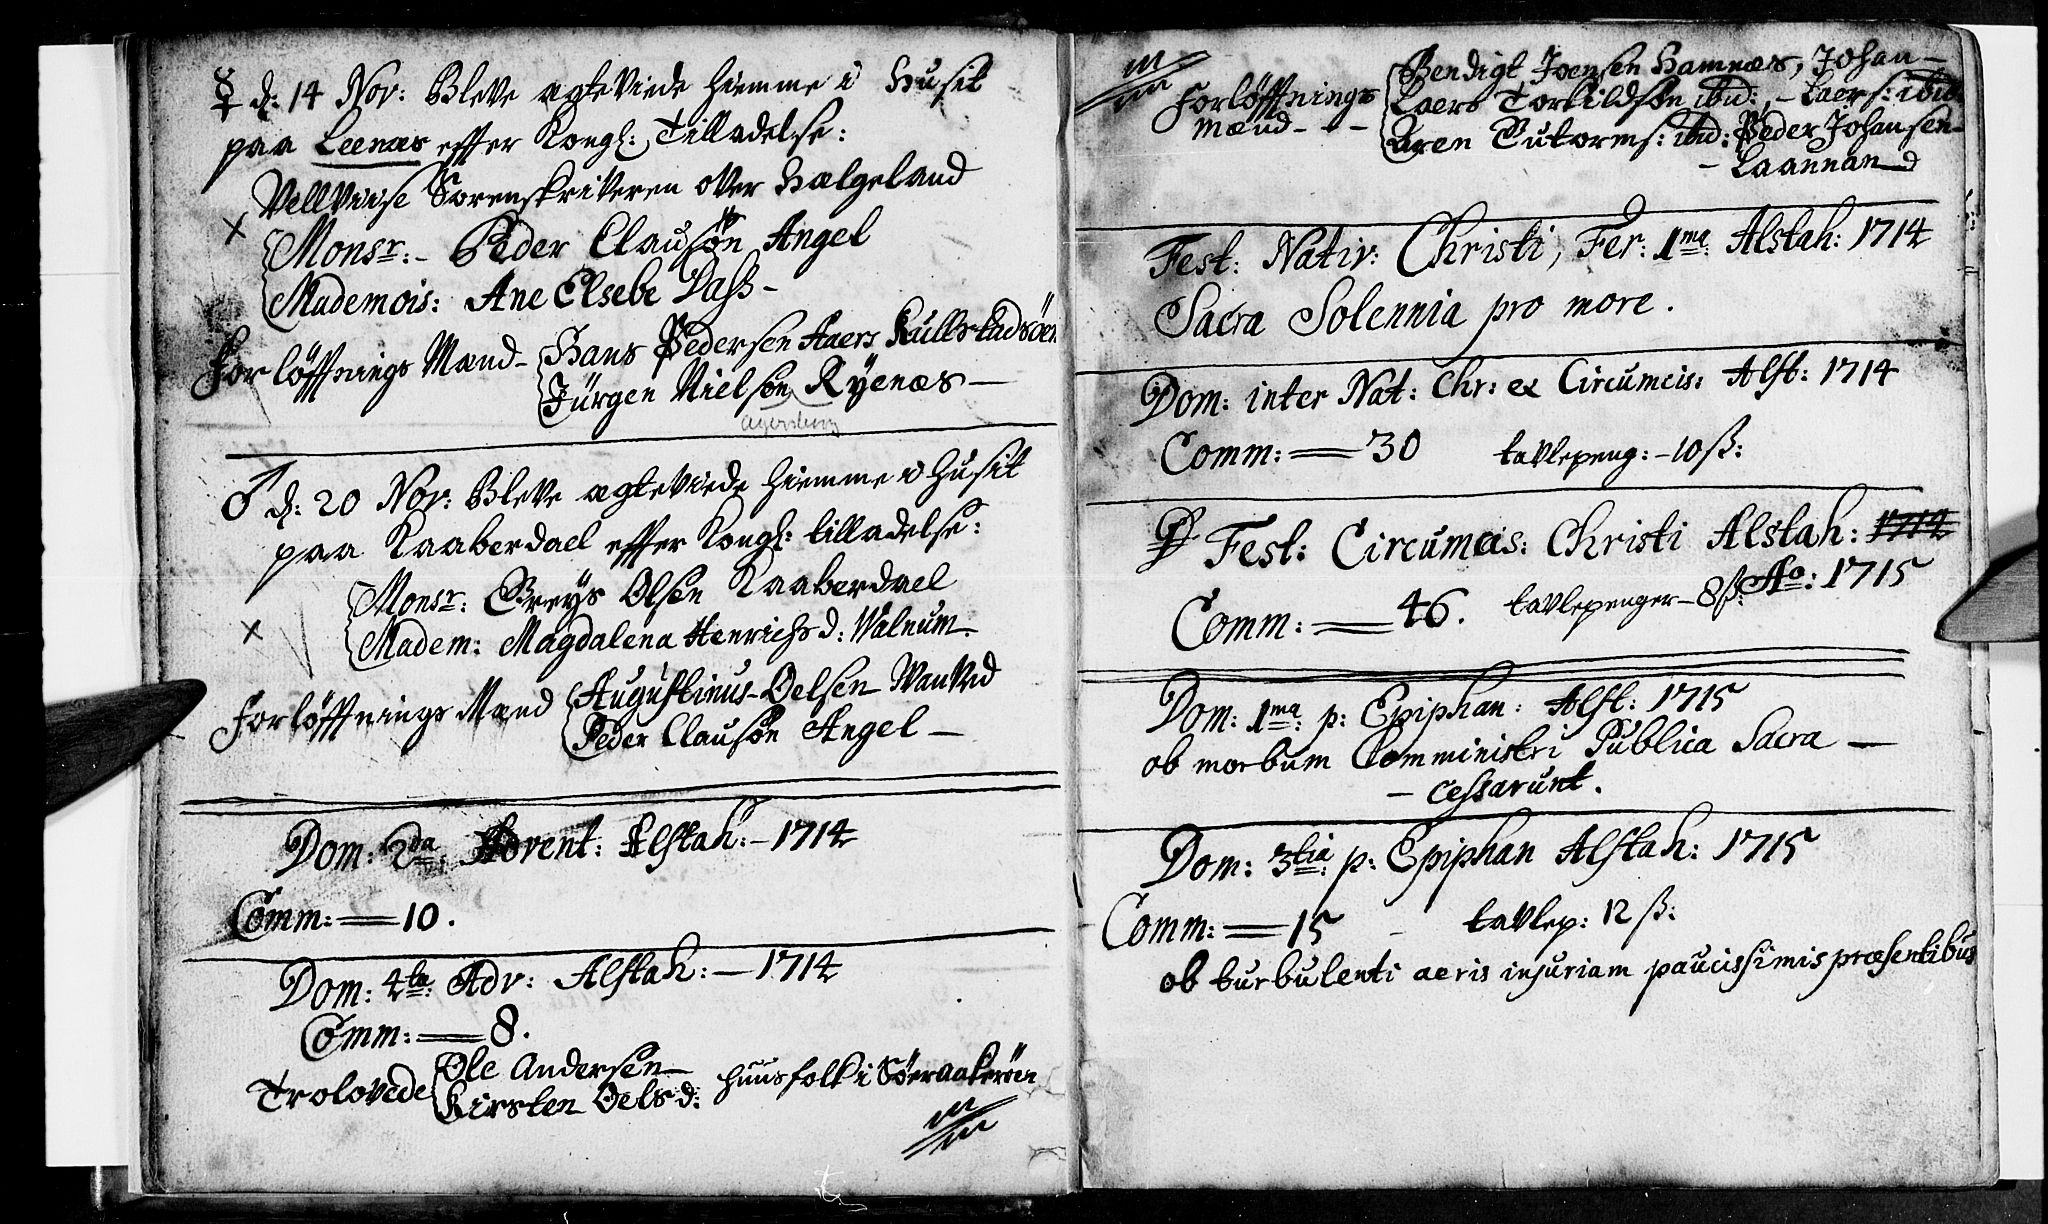 ☿ d: 14 Nov: Bleve egteviede hiemme i Husit
paa Leenæs effter Kongl: Tilladelse:
Vellviise Sorenskriveren over Helgeland
× Monsr: - Peder Clausøn Angel
Mademois: Ane Elsebe Dass -
Forløffnings Mænd - Hans Pedersen Aaers Kullstadsøen
Jürgen Nielsøn Ryenæs -
♂ d: 20 Nov: Bleve egteviede hiemme i Husit
paa Kaaberdael effter Kongl: tilladelse:
Monsr: Greys Olsen Kaaberdael
× Madem: Magdalena Henrichsd: Walnum.
Forløffnings Mænd Augustinus Oelsen Wanved
Peder Clausøn Angel -
Dom: 2da: Advent: Alstah: - 1714
Comm: = 10.
Dom: 4ta: Adv: Alstah: - 1714
Comm: = 8.
Trolovede Ole Andersen -
Kirsten Oelsd: Huusfolk i Søeraakerøen
Forløffnings Bendigt Joensen Hamnæs, Johan -
Mænd - - - Laers Torkildsøn ibid:, - Laers: ibid
Aren Gutorms: ibid: Peder Johansen -
- Laannan
Fest: Nativ: Christi, Fer: 1ma: Alstah: 1714
Sacra Solennia pro more.
Dom: inter Nat: Chr: & Circumcis: Alst: 1714
Comm: = 30 tavlepeng: - 10 ß:
Fest: Circumcis: Christi Alstah: 1714
Ao: 1715
Comm: = 46. tavlepenger - 8 ß:
Dom: 1ma: p: Epiphan: Alst: 1715
ob morbum Comministri Publica Sacra -
- cessarunt.
Dom: 3tia: p: Epiphan Alstah: 1715
Comm: = 15 - tavlep: 12 ß:
ob turbulenti aeris injuriam paucissimis præsentibus